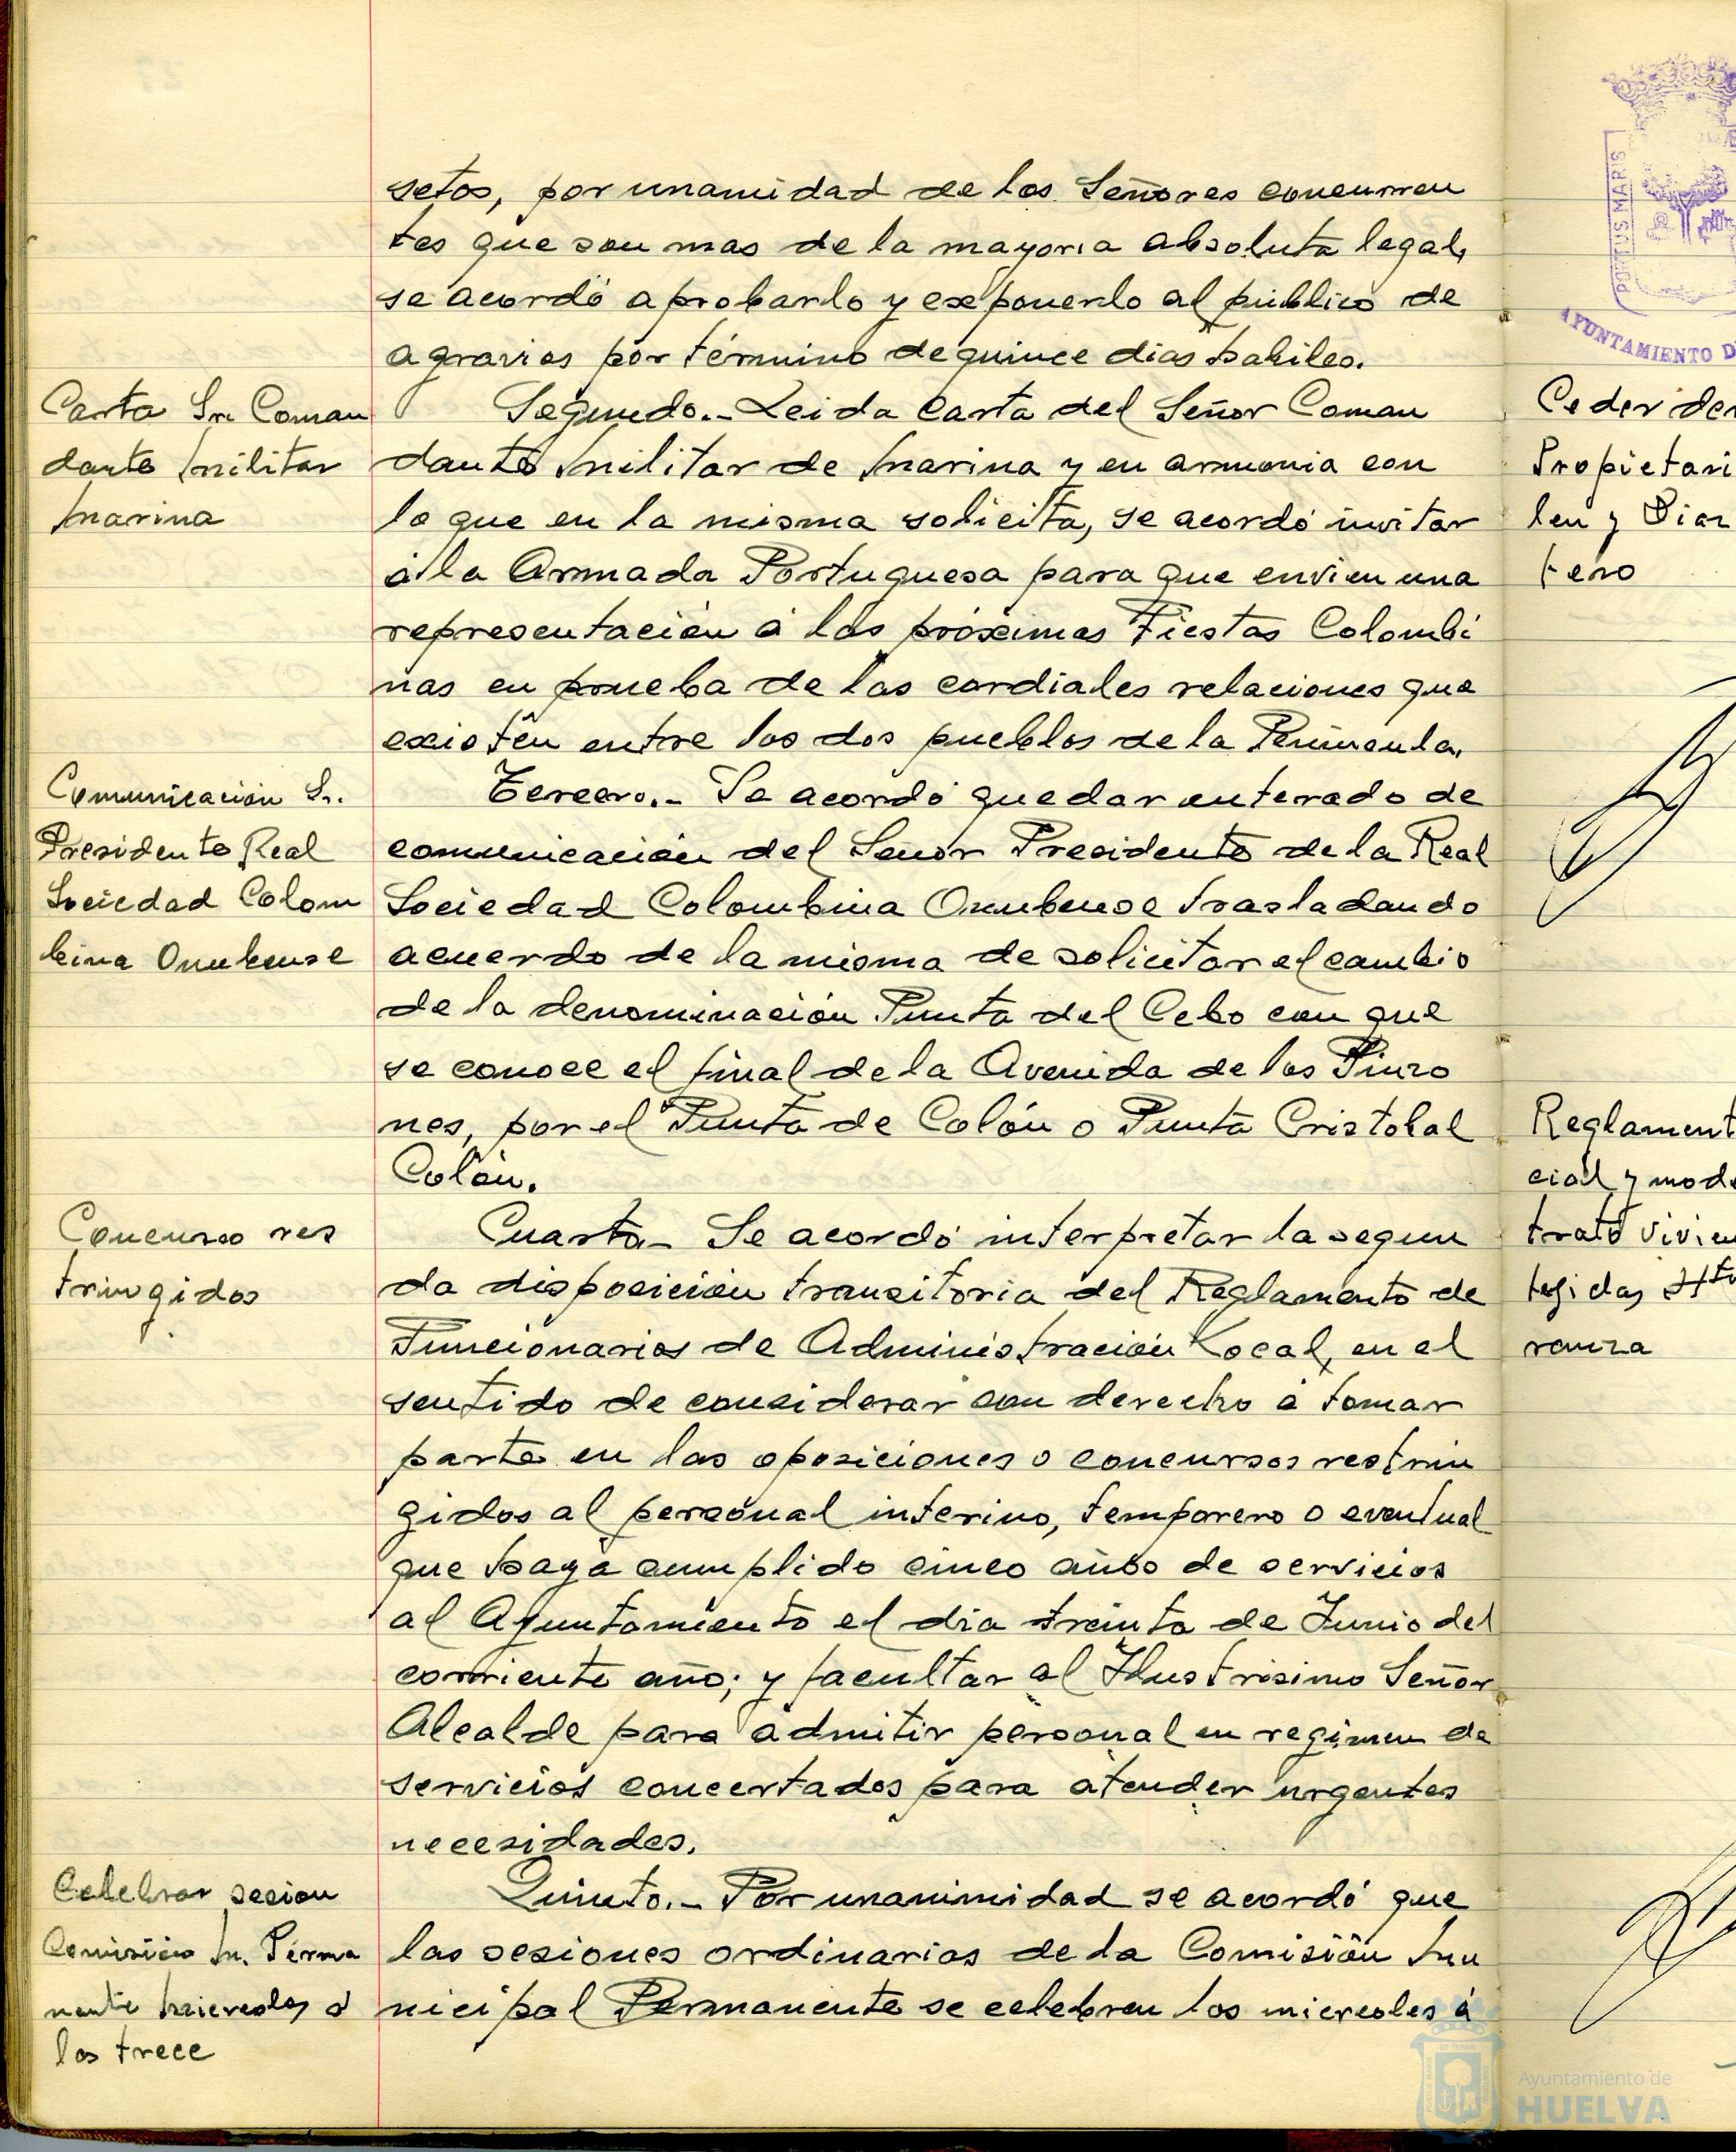 setos, por unamidad de los Señores concurren
tes que son mas de la mayoria absoluta legal,
se acordó aprobarlo y exponerlo al público de
agravios por término de quince dias habiles.
Carta Sr. Coman
dante Militar
Marina
Segundo.- Leida Carta del Señor Coman
dante Militar de Marina y en armonia con
lo que en la misma solicita, se acordó invitar
á la Armada Portuguesa para que envien una
representación á las próximas Fiestas Colombi
nas en prueba de las cordiales relaciones que
existen entre los dos pueblos de la Peninsula.
Comunicación Sr.
Presidente Real
Sociedad Colom
bina Onubense
Tercero.- Se acordó quedar enterado de
comunicación del Señor Presidente de la Real
Sociedad Colombina Onubense trasladando
acuerdo de la misma de solicitar el cambio
de la denominación Punta del Cebo con que
se conoce el final de la Avenida de los Pinzo
nes, por el Punta de Colón o Punta Cristobal
Colón.
Concurso res
tringidos
Cuarto- Se acordó interpretar la segun
da disposición transitoria del Reglamento de
Funcionarios de Administración Local, en el
sentido de considerar con derecho á tomar
parte en las oposiciones o concursos restrin
gidos al personal interino, temporero o eventual
que haya cumplido cinco años de servicios
al Ayuntamiento el dia treinta de Junio del
corriente año; y facultar al Ilustrisimo Señor
Alcalde para admitir personal en regimen de
servicios concertados para atender urgentes
necesidades.
Celebrar sesion
Comisión M. Perma
nente miercoles á
las trece
Quinto.- Por unanimidad se acordó que
las sesiones ordinarias de la Comisión Mu
nicipal Permanente se celebren los miercoles á
PORTUS MARIS
AYUNTAMIENTO D
Ceder der
Propietari
len y Diaz
tero
Reglament
cial y mode
trato vivien
tegidas
ranza
Ayuntamiento de
HUELVA